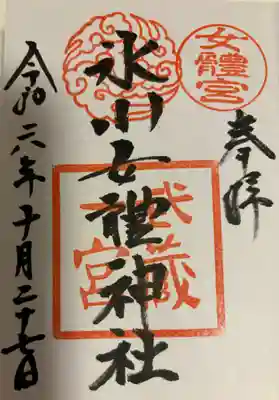 奉拝
女體宮
氷川女體神社
武蔵一宮
令和六年十月二十七日